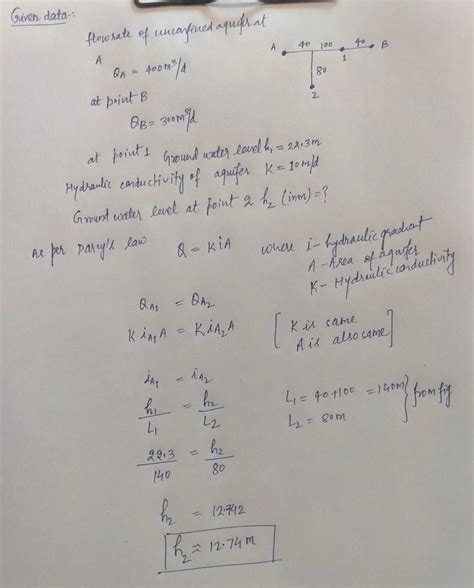 Given data:-
flowrate of unconfined aquifer at
A
Q_A = 400m³/d
at point B
Q_B = 300m³/d
A 40 100 40 B
1
80
2
at point 1 Ground water level h₁ = 22.3m
Hydraulic conductivity of aquifer K = 20m/d
Ground water level at point 2 h₂ (inm) = ?
As per Darcy's law Q = KiA where i - hydraulic gradient
A - Area of aquifer
K - Hydraulic conductivity
Q_A1 = Q_A2
K i_A1 A = K i_A2 A [K is same
A is also same]
i_A1 = i_A2
h₁/L₁ = h₂/L₂
L₁ = 40+100 = 140m
L₂ = 80m } from fig
22.3/140 = h₂/80
h₂ = 12.742
h₂ ≈ 12.74m